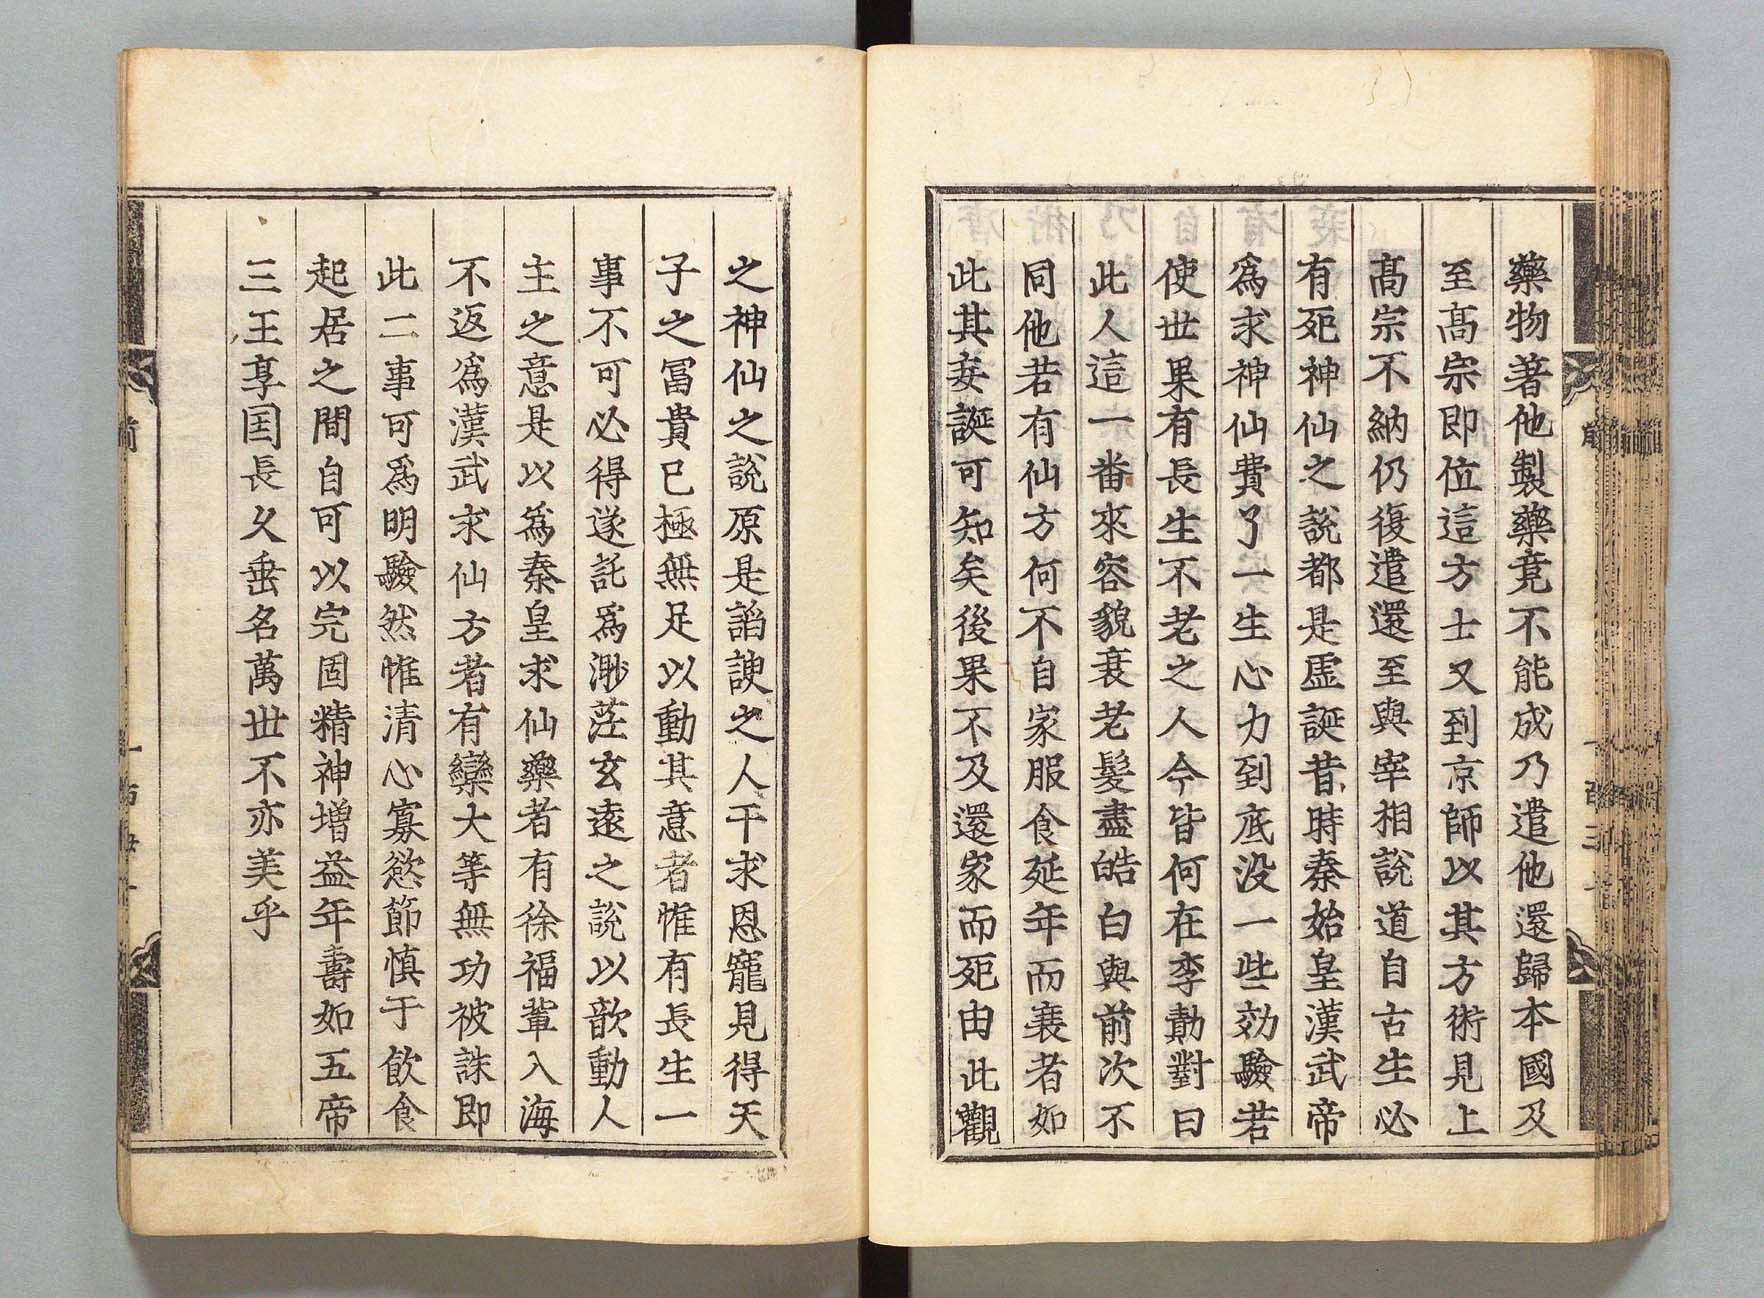 藥物著他製藥竟不能成乃遣他還歸本國及
至高宗即位這方士又到京師以其方術見上
高宗不納仍復遣還至與宰相說道自古生必
有死神仙之說都是虛誕昔時秦始皇漢武帝
爲求神仙費了一生心力到底没一些効驗若
使世果有長生不老之人今皆何在李勣對曰
此人這一番來容貌衰老髮盡皓白與前次不
同他若有仙方何不自家服食延年而衰者如
此其妄誕可知矣後果不及還家而死由此觀
之神仙之說原是謟諛之人干求恩寵見得天
子之冨貴已極無足以動其意者惟有長生一
事不可必得遂託爲渺茫玄遠之說以歆動人
主之意是以爲秦皇求仙藥者有徐福輩入海
不返爲漢武求仙方者有欒大等無功被誅即
此二事可爲明驗然惟清心寡慾節慎于飲食
起居之間自可以完固精神增益年壽如五帝
三王享国長久垂名萬世不亦美乎